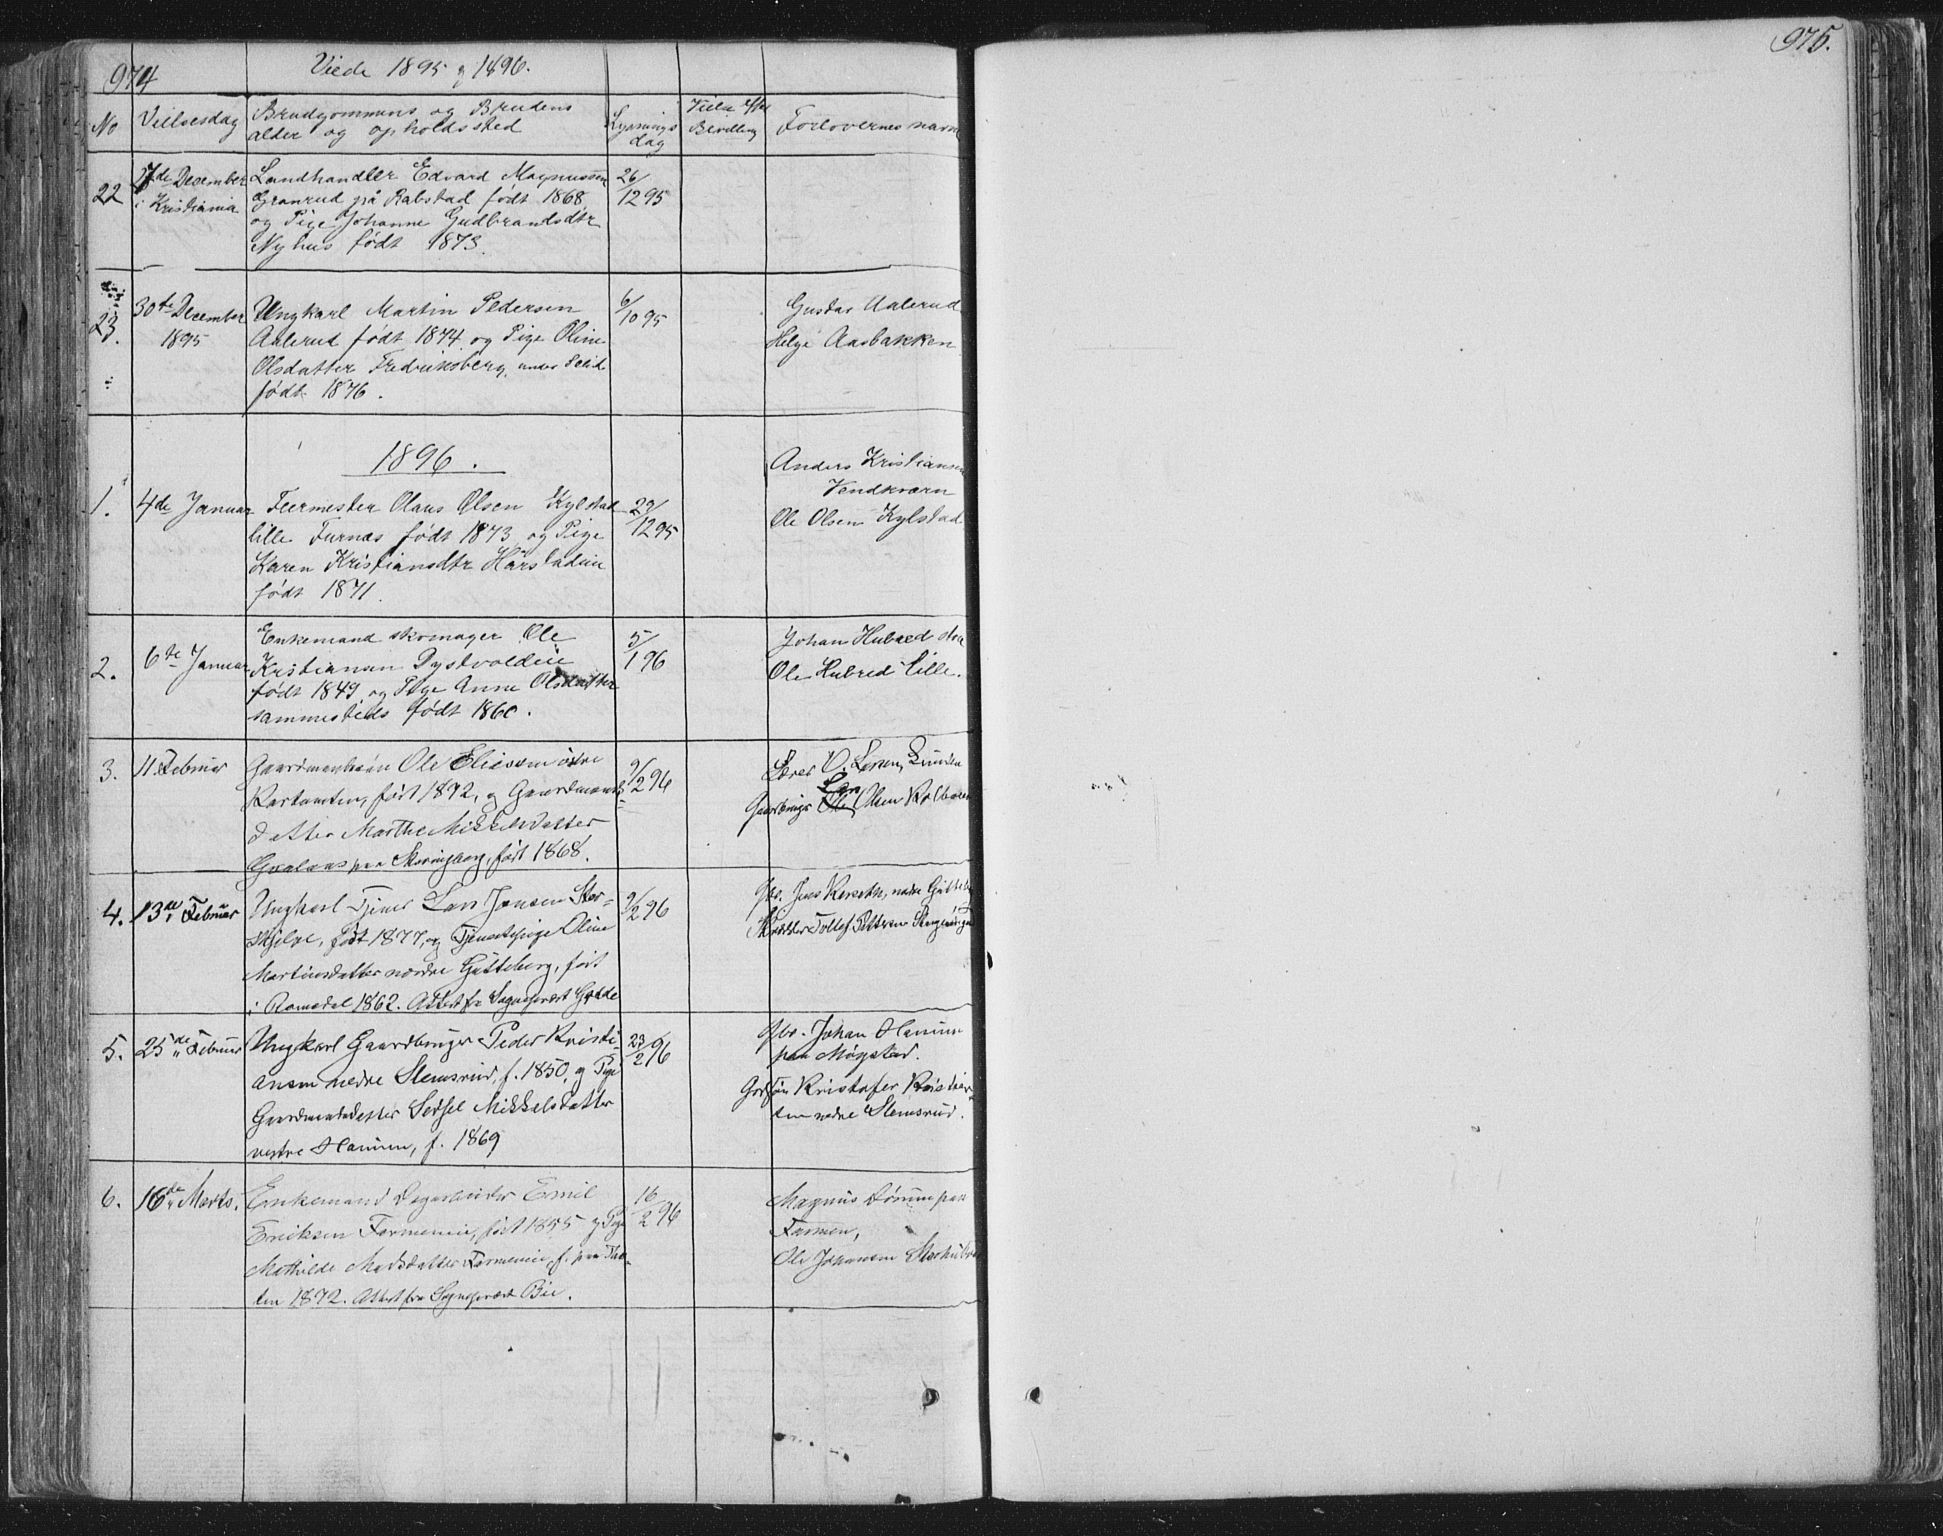 974
Viede 1895 og 1896.
975.
No Vielsesdag Brudgommens og Brudens alder og opholdssted Lysnings dag Vielse efter Bevilling Forlovernes navn
22 17de December Landhandler Edvard Magnussen 26/12 95
i Kristiania Granrud på Rabstad født 1868
og Pige Johanne Gudbrandsdtr
Nyhus født 1873.
23. 30te December Ungkarl Martin Pedersen 6/10 95 Gustav Aalerud
1895 Aalerud født 1874 og Pige Oline Helge Aasbakken
Olsdatter Fredriksberg, under
født 1876.
1896.
Anders Kristiansen
Vendkværn
1. 4de Januar Feiermester Olaus Olsen Kylstad 29/12 95 Ole Olsen Kylstad
lille Furnæs født 1873 og Pige
Karen Kristiansdtr
født 1871.
2. 6te Januar Enkemand skomager Ole 5/1 96 Johan Hubred
Kristiansen Dystvoldeie Ole Hubred lille.
født 1849 og Pige Anne Olsdatter
sammesteds født 1860.
3. 11. Februar Gaardmandssøn Ole Eliassen østre 9/2 96 Lærer O. Linden
født 1872, og Gaardmands Gaardbruger Lars Olsen
datter Marthe Mikkelsdatter
paa Skaringberg, født 1868.
4. 13de Februar Ungkarl Tjener Lars Jensen Stor- 9/2 96 Gbr. Jens nedre Gitteberg
skjelve, født 1877, og Tjenestepige Oline Skrædder Tollef Pettersen
Martinsdatter nedre Gitteberg, født
i Romedal 1862. Attest fra Sognepræst Gjødde
5. 25de Februar Ungkarl Gaardbruger Peder Kristi- 23/2 96 Gbr. Johan
ansen nedre Slemsrud, f. 1850, og Pige paa Møystad.
Gaardmandsdatter Sedsel Mikkelsdatter Kristofer Kristian-
vestre f. 1869 sen nedre Slemsrud.
6. 16de Marts. Enkemand Dagarbeider Emil 16/2 96 Magnus paa
Eriksen Farmeneie, født 1855 og Pige Farmen,
Mathilde Madsdatter Farmeneie, f. paa Tho- Ole Johannesen
ten 1872. Attest fra Sognepræst Bie.